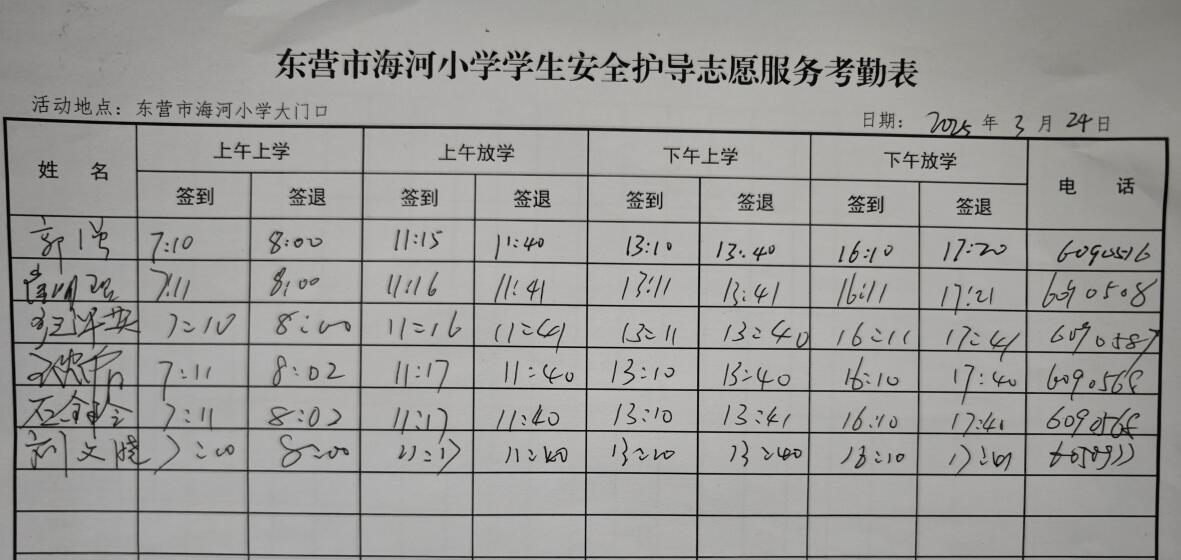 东营市海河小学学生安全护导志愿服务考勤表
活动地点：东营市海河小学大门口 日期：2025年3月24日
姓 名 上午上学 上午放学 下午上学 下午放学 电 话
签到 签退 签到 签退 签到 签退 签到 签退
7:10 8:00 11:15 11:40 13:10 13:40 16:10 17:20 6090516
7:11 8:00 11:16 11:41 13:11 13:41 16:11 17:21 6090508
7:10 8:00 11:16 11:41 13:11 13:40 16:11 17:41 6090587
7:11 8:02 11:17 11:40 13:10 13:40 16:10 17:40 6090568
7:11 8:02 11:17 11:40 13:10 13:41 16:10 17:41 6090568
刘文晓 8:00 11:17 11:40 13:40